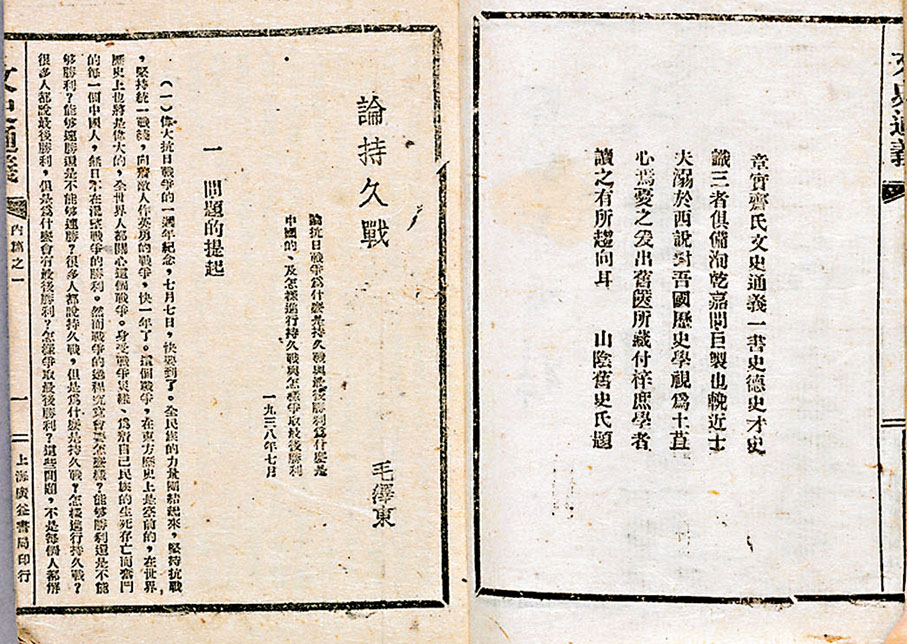 文史通義
章實齊氏文史通義一書史德史才史
識三者俱備洵乾嘉間巨製也輓近士
夫溺於西說對吾國歷史學視爲土苴
心焉憂之爰出舊篋所藏付梓庶學者
讀之有所趨向耳　山陰舊史氏題
論持久戰
毛澤東
論抗日戰爭爲什麽是持久戰與最後勝利爲什麽是
中國的、及怎樣進行持久戰與怎樣爭取最後勝利
一九三八年七月
一　問題的提起
（一）偉大抗日戰爭的一週年紀念，七月七日，快要到了。全民族的力量團結起來，堅持抗戰
，堅持統一戰綫，向着敵人作英勇的戰爭，快一年了。這個戰爭，在東方歷史上是空前的，在世界
歷史上也將是偉大的，全世界人都關心這個戰爭。身受戰爭災難、爲着自己民族的生死存亡而奮鬥
的每一個中國人，無日不在渴望戰爭的勝利。然而戰爭的過程究竟會要怎麽樣？能够勝利還是不能
够勝利？能够速勝還是不能够速勝？很多人都說持久戰，但是爲什麽是持久戰？怎樣進行持久戰？
很多人都說最後勝利，但是爲什麽會有最後勝利？怎樣爭取最後勝利？這些問題，不是每個人都解
文史通義　內篇之一　一　上海廣益書局印行